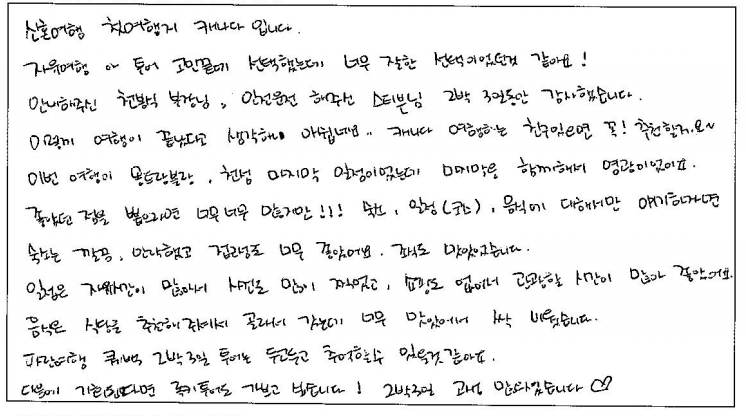 신혼여행 첫여행지 캐나다 입니다.
자유여행 아 투어 고민끝에 선택했는데 너무 잘한 선택이었던것 같아요!
안내해주신 천봉식 부장님, 안전운전 해주신 스티븐님 2박 3일동안 감사했습니다.
이렇게 여행이 끝났다고 생각하니 아쉽네요.. 캐나다 여행하는 친구있으면 꼭! 추천할거에요~
이번 여행이 몽트랑블랑, 천섬 마지막 일정이었는데 마지막을 함께해서 영광이었어요.
좋았던 점을 뽑으라면 너무너무 많지만!!! 숙소, 일정(코스), 음식에 대해서만 얘기하자면
숙소는 깔끔, 안락했고 컨디션도 너무 좋았어요. 조식도 맛있었습니다.
일정은 자유시간이 많아서 사진도 많이 찍었고, 쇼핑도 없어서 관광할 시간이 많아 좋았어요.
음식은 식당을 추천해주셔서 골라서 갔는데 너무 맛있어서 싹 비웠습니다.
파란여행 퀘백 2박3일 투어는 두고두고 추억할수 있을것 같아요.
다음에 기회된다면 록키투어도 가보고 싶습니다! 2박3일 고생 많으셨습니다 ♡